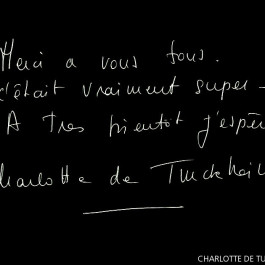 Merci a vous tous.
c'était vraiment super -
A tres bientôt j'espèr
Charlotte de Turckheim
CHARLOTTE DE TU